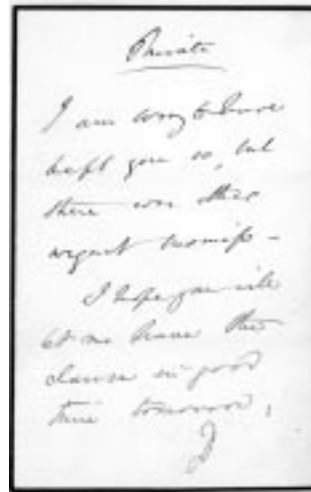 Private
I am sorry to have
kept you so, but
there was other
urgent business -
I hope you will
let me have the
clause in good
time tomorrow,
D